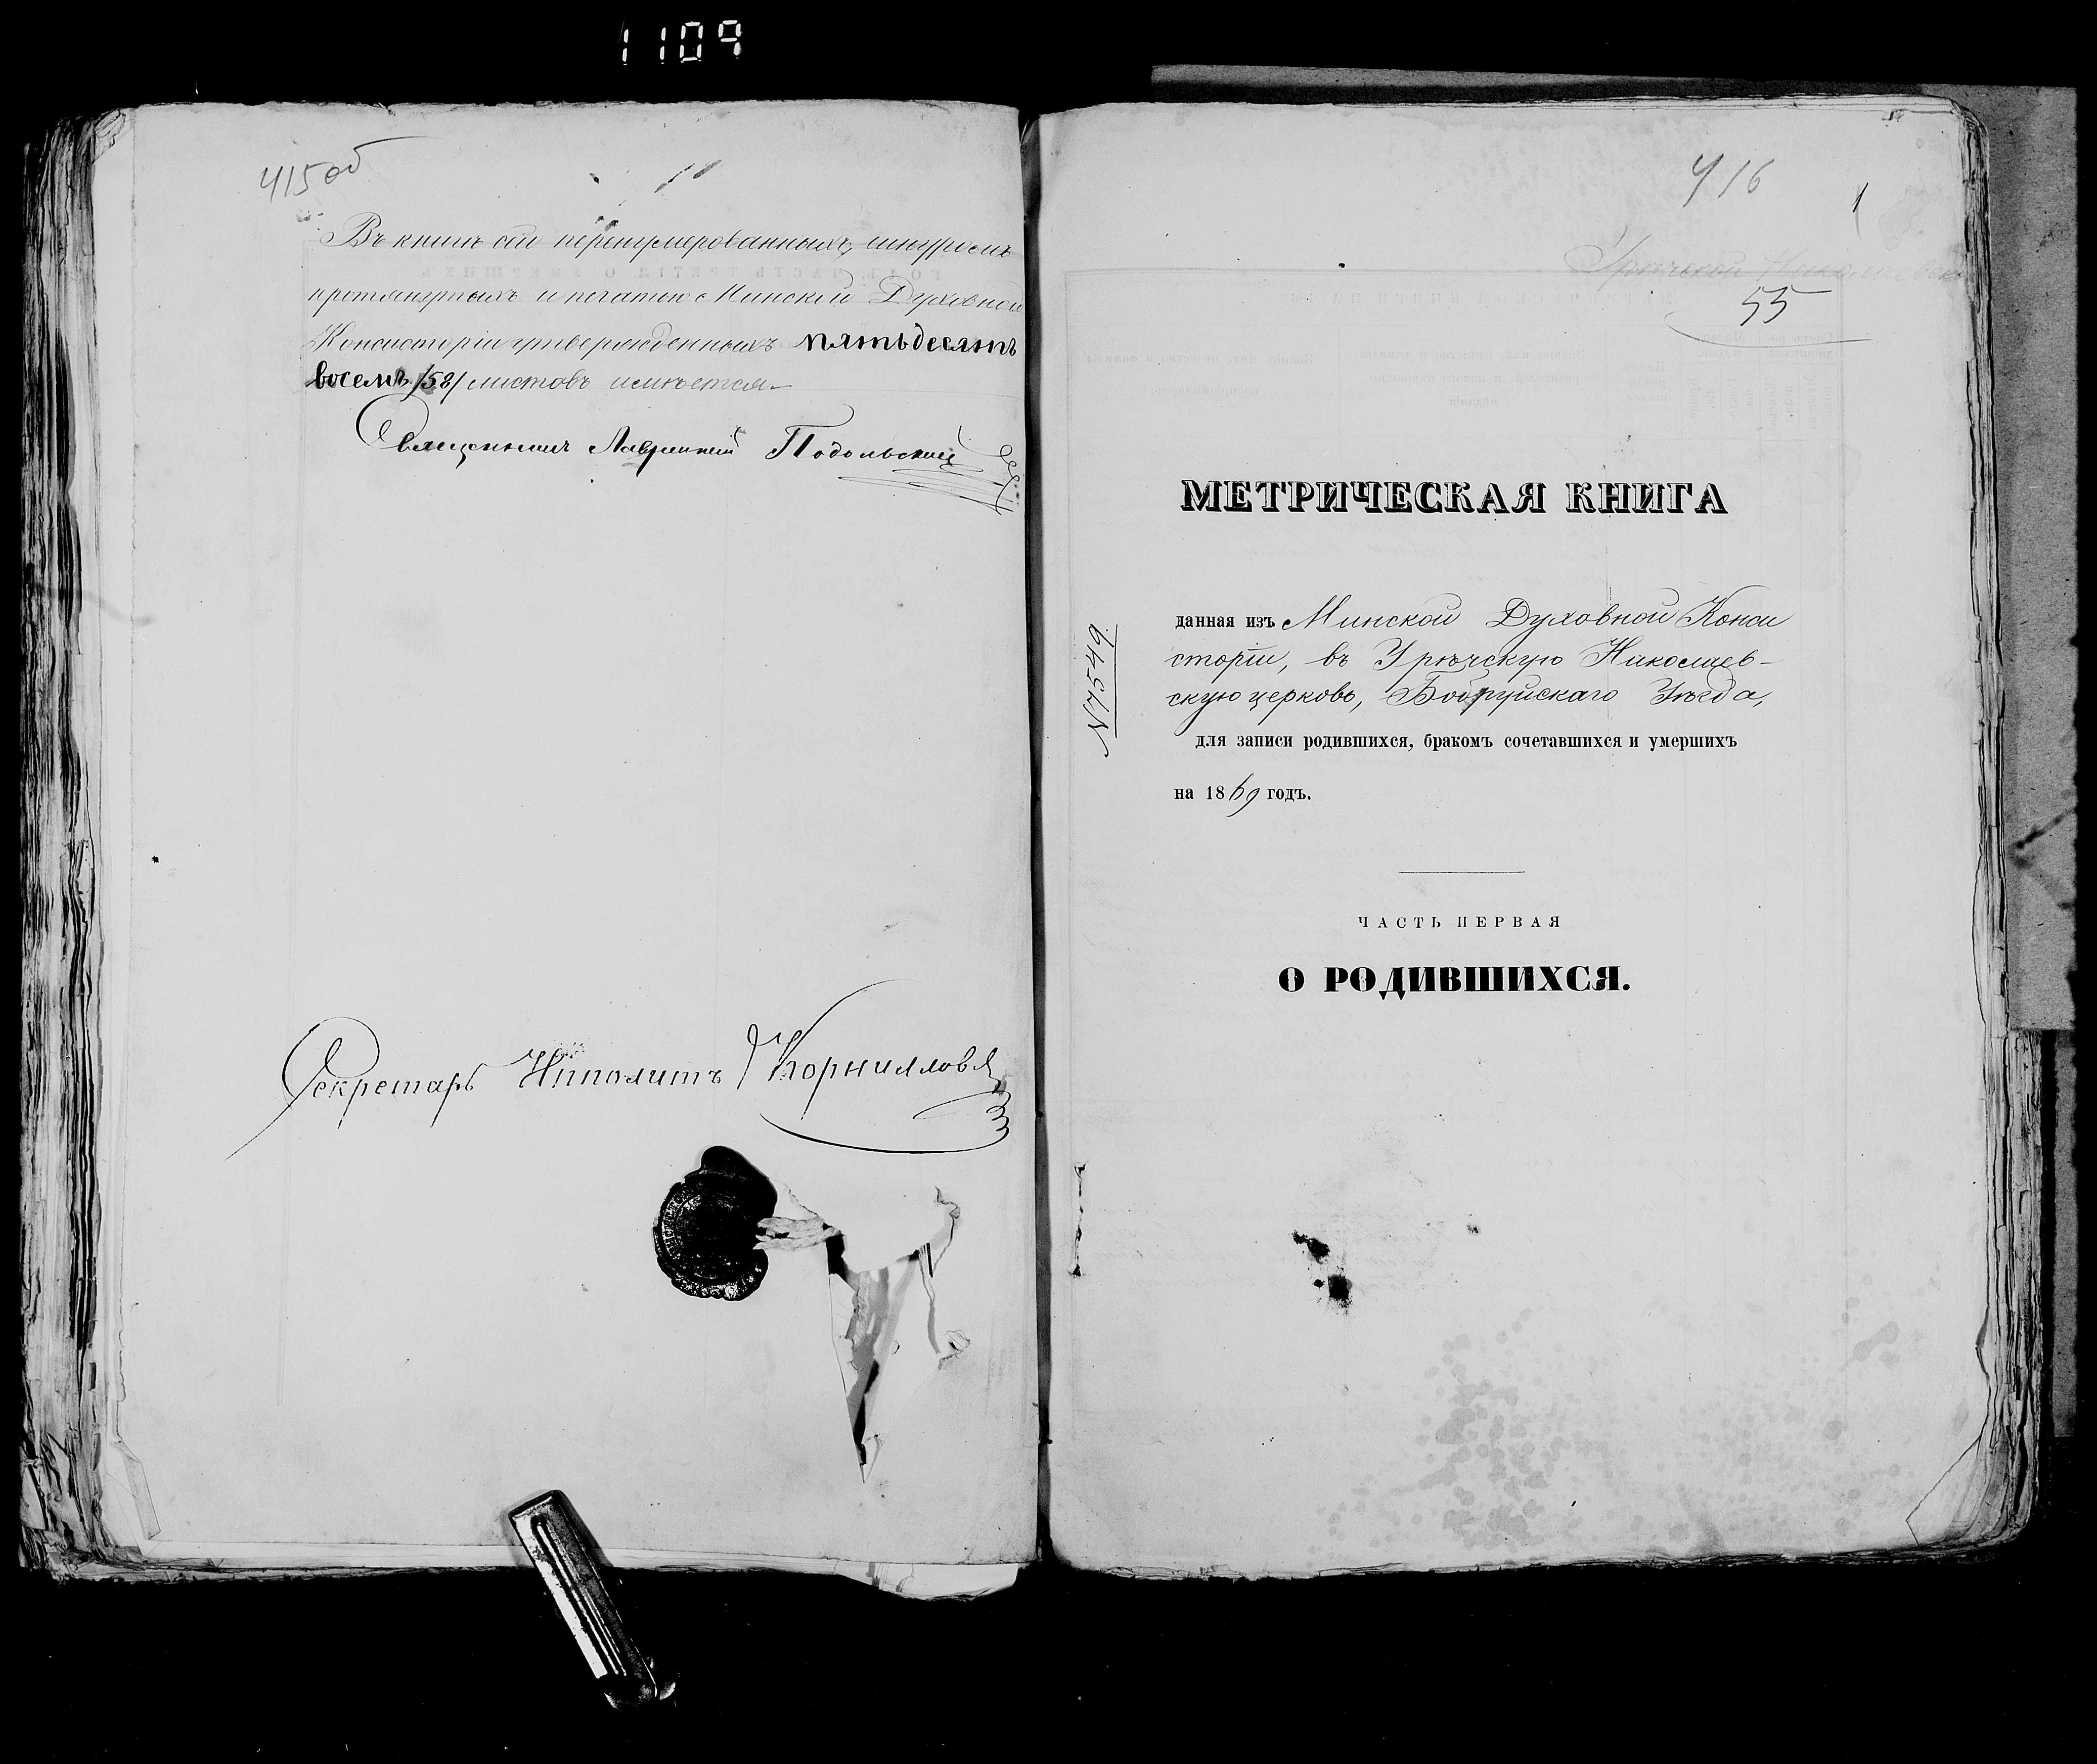 1109
415об
Въ книгѣ сей перенумерованныхъ, шнуромъ
протянутыхъ и печатью Минской Духовной
Консисторіи утвержденныхъ пятьдесятъ
восемь /58/ листовъ имѣется.
Священникъ Подольскій
Секретарь Ипполитъ Корниловъ
416
1
Урѣчской Николаевск
55
МЕТРИЧЕСКАЯ КНИГА
данная изъ Минской Духовной Конси
сторіи, въ Урѣчскую Николаев-
скую церковь, Бобруйскаго Уѣзда,
для записи родившихся, бракомъ сочетавшихся и умершихъ
на 1869 годъ.
№7549
ЧАСТЬ ПЕРВАЯ
О РОДИВШИХСЯ.